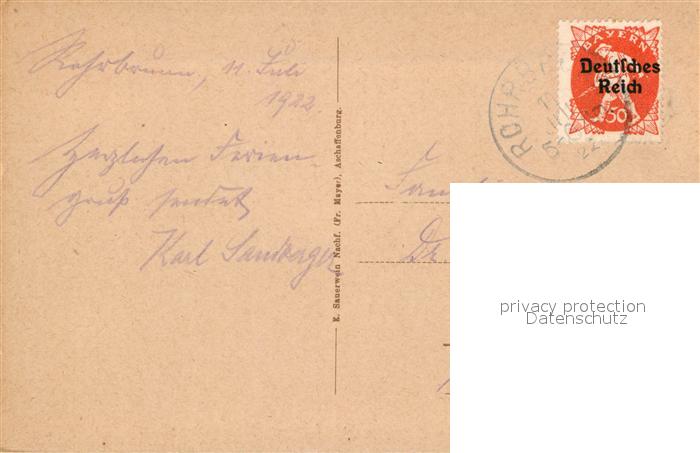 Rohrbrunn, 11. Juli
1922
Herzlichen Ferien-
gruß sendet
Karl
E. Sauerwein Nachf. (Fr. Mayer), Aschaffenburg.
BAYERN
Deutsches
Reich
50
ROHR
22
Fam
Dr.
privacy protection
Datenschutz